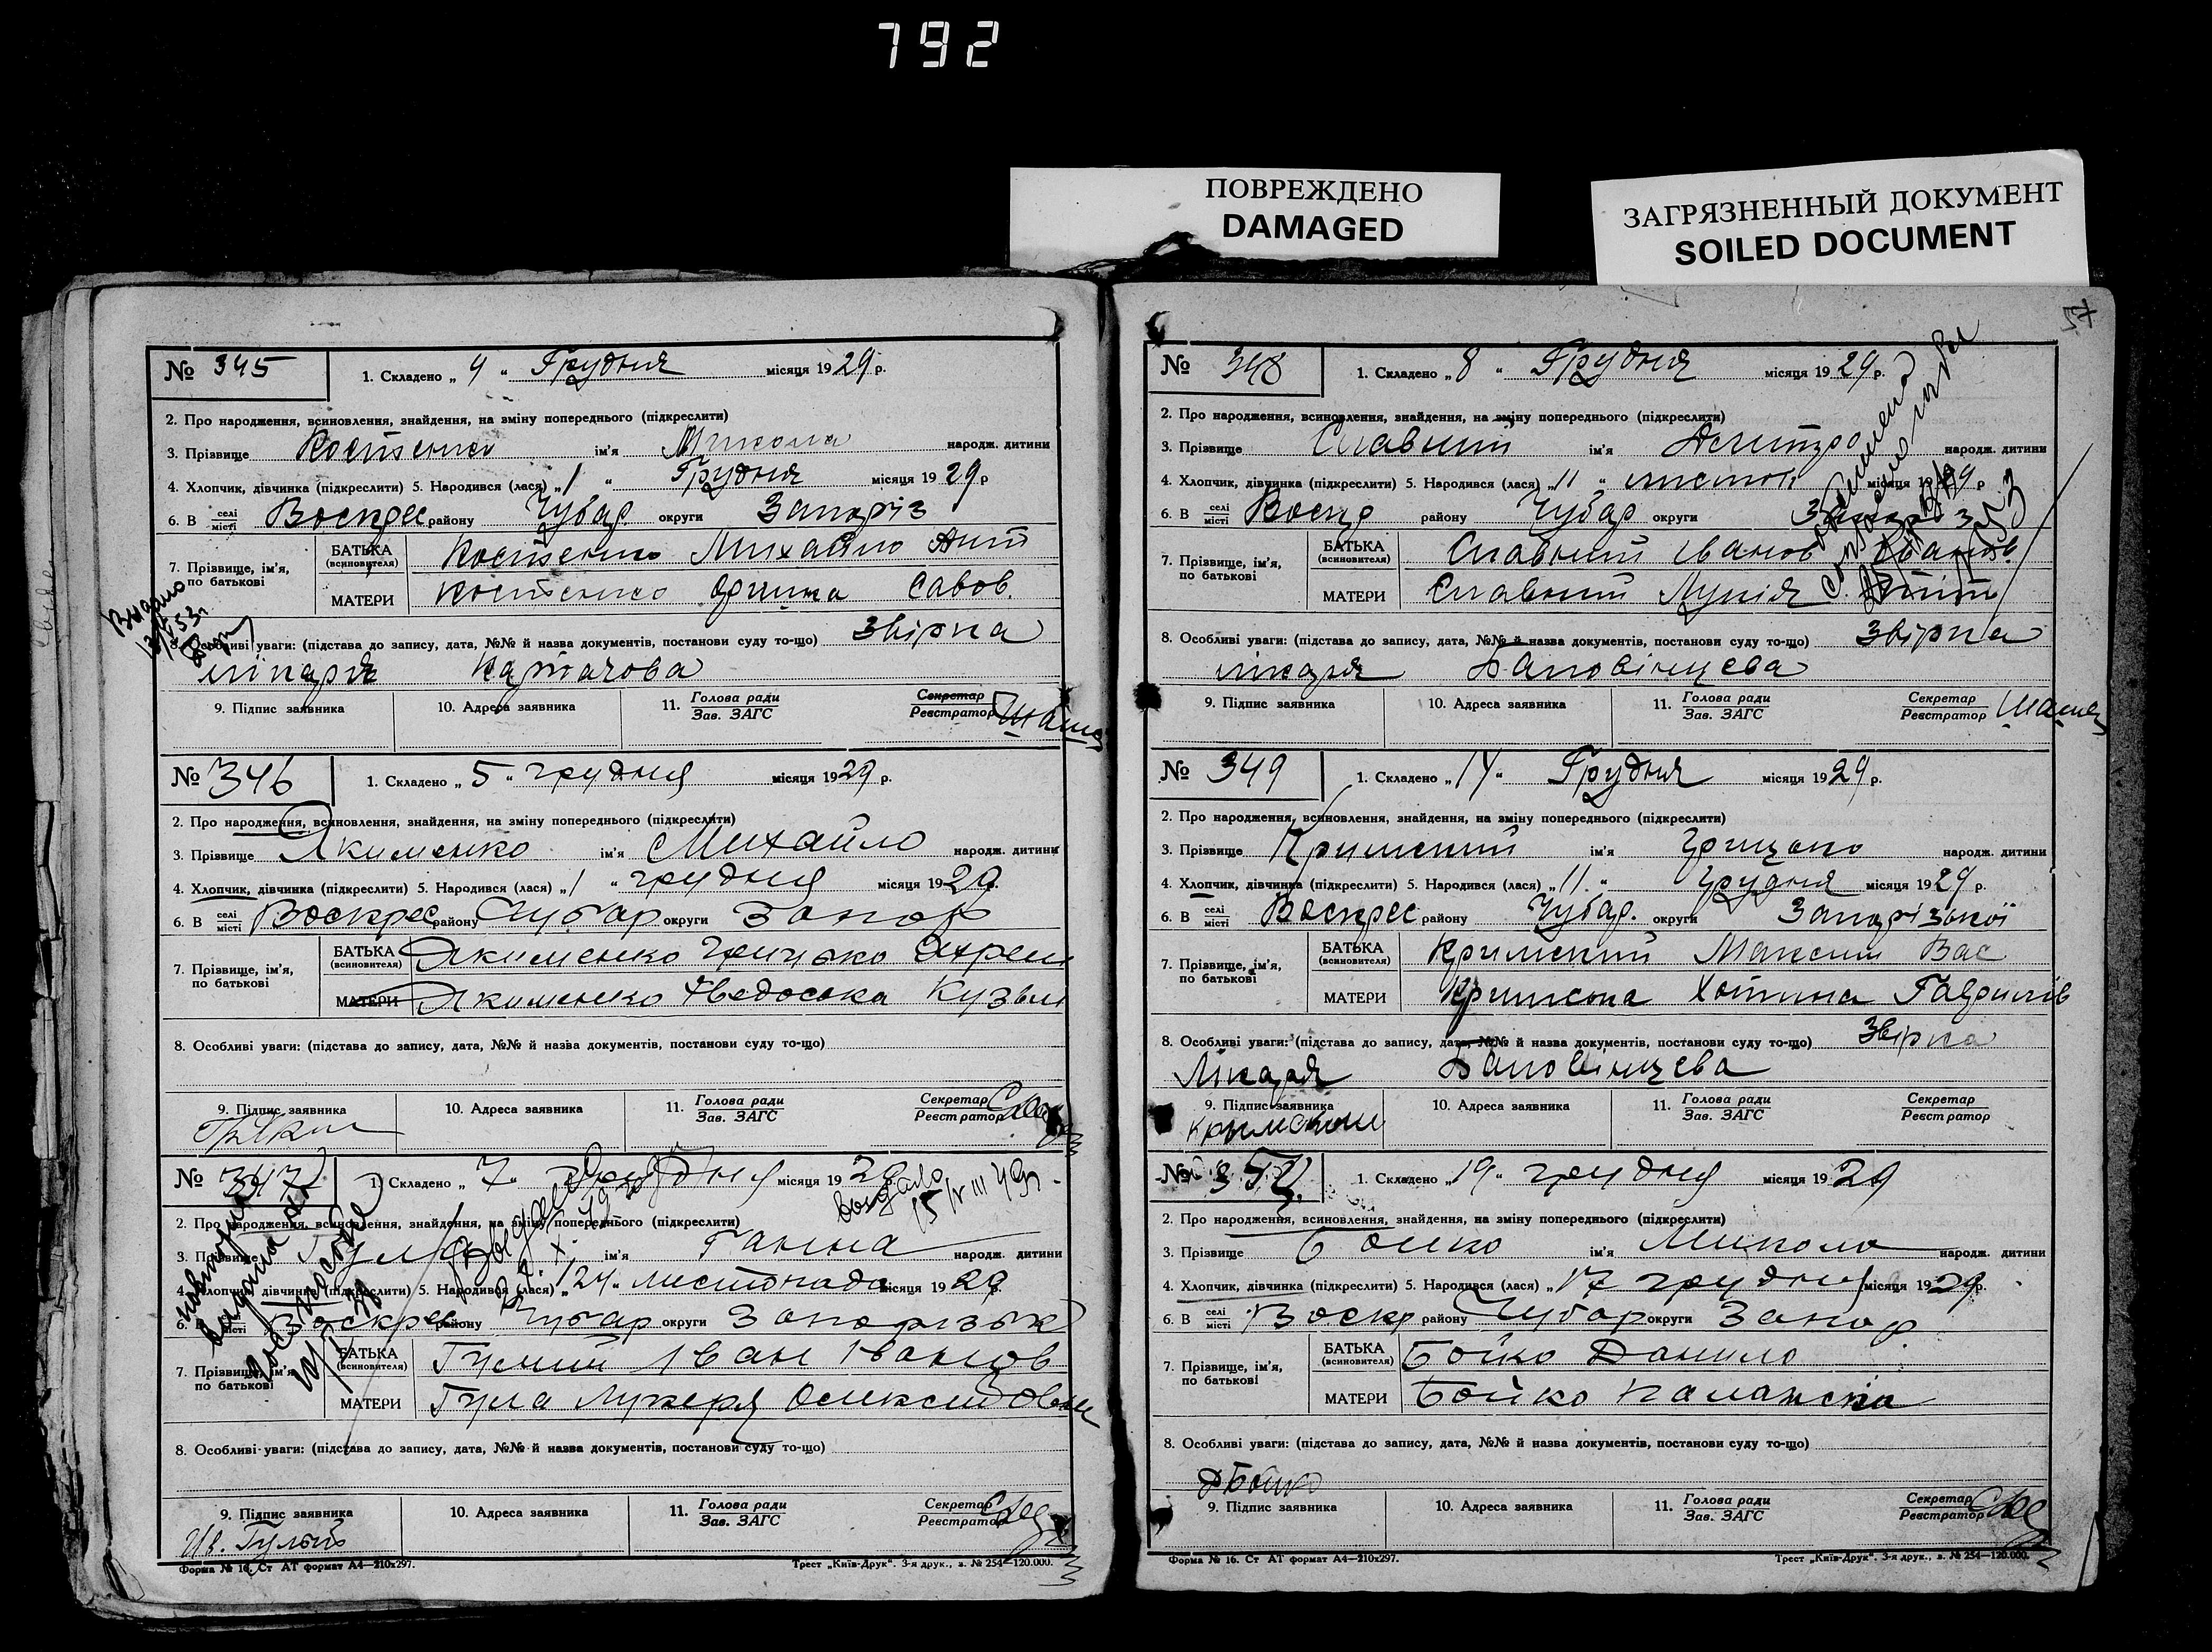 792
ПОВРЕЖДЕНО
DAMAGED
ЗАГРЯЗНЕННЫЙ ДОКУМЕНТ
SOILED DOCUMENT
№ 345
1. Складено „ 4 “ Грудня місяця 1929 р.
2. Про народження, всиновлення, знайдення, на зміну попереднього (підкреслити)
3. Прізвище Костенко ім'я Микола народж. дитини
4. Хлопчик, дівчинка (підкреслити) 5. Народився (лася) „1 “ Грудня місяця 1929 р
6. В селі місті Воскрес району Чубар. округи Запоріз
7. Прізвище, ім'я, по батькові
БАТЬКА (всиновителя) Костенко Михайло Ант
МАТЕРИ Костенко Орина Савов.
Видано
8. Особливі уваги: (підстава до запису, дата, №№ й назва документів, постанови суду то-що) Звірка
лікаря Картачова
9. Підпис заявника 10. Адреса заявника 11. Голова ради Зав. ЗАГС Секретар Реєстратор
№ 346
1. Складено „ 5 “ грудня місяця 1929 р.
2. Про народження, всиновлення, знайдення, на зміну попереднього (підкреслити)
3. Прізвище Якименко ім'я Михайло народж. дитини
4. Хлопчик, дівчинка (підкреслити) 5. Народився (лася) „1 “ грудня місяця 1929 р.
6. В селі місті Воскрес району Чубар округи Запор
7. Прізвище, ім'я, по батькові
БАТЬКА (всиновителя) Якименко Грицько Охрем
МАТЕРИ Якименко Хведоська Кузьм
8. Особливі уваги: (підстава до запису, дата, №№ й назва документів, постанови суду то-що)
9. Підпис заявника 10. Адреса заявника 11. Голова ради Зав. ЗАГС Секретар Реєстратор
№ 347
1. Складено „ 7 грудня місяця 1929
видано
2. Про народження, всиновлення, знайдення, на зміну попереднього (підкреслити)
3. Прізвище Гула ім'я Ганна народж. дитини
4. Хлопчик, дівчинка (підкреслити) 5. Народився (лася) „24 “ листопада місяця 1929 р.
6. В селі місті Воскрес району Чубар округи Запорізьк
7. Прізвище, ім'я, по батькові
БАТЬКА (всиновителя) Гулий Іван Іванов
МАТЕРИ Гула Лукеря Олександовн
8. Особливі уваги: (підстава до запису, дата, №№ й назва документів, постанови суду то-що)
9. Підпис заявника 10. Адреса заявника 11. Голова ради Зав. ЗАГС Секретар Реєстратор
Ив. Гулый
Форма № 16. Ст АТ формат А4—210х297. Трест „Київ-Друк“. 3-я друк., з. № 254—120.000.
57
№ 348
1. Складено „ 8 “ Грудня місяця 1929 р.
2. Про народження, всиновлення, знайдення, на зміну попереднього (підкреслити)
3. Прізвище Славний ім'я Дмитро народж. дитини
4. Хлопчик, дівчинка (підкреслити) 5. Народився (лася) „11 “ листоп місяця 1929 р
6. В селі місті Воскр району Чубар округи
7. Прізвище, ім'я, по батькові
БАТЬКА (всиновителя) Славний Іванов Іванов.
МАТЕРИ Славний Лукія
8. Особливі уваги: (підстава до запису, дата, №№ й назва документів, постанови суду то-що) Звірка
лікаря Баловінцева
9. Підпис заявника 10. Адреса заявника 11. Голова ради Зав. ЗАГС Секретар Реєстратор
№ 349
1. Складено „14“ Грудня місяця 1929 р.
2. Про народження, всиновлення, знайдення, на зміну попереднього (підкреслити)
3. Прізвище Кримский ім'я Грицько народж. дитини
4. Хлопчик, дівчинка (підкреслити) 5. Народився (лася) „11 “ Грудня місяця 1929 р.
6. В селі місті Воскрес району Чубар. округи Запорізької
7. Прізвище, ім'я, по батькові
БАТЬКА (всиновителя) Кримский Максим Вас
МАТЕРИ Кримська Хотина Гаврилів
8. Особливі уваги: (підстава до запису, дата, №№ й назва документів, постанови суду то-що) Звірка
Лікаря Баловінцева
9. Підпис заявника 10. Адреса заявника 11. Голова ради Зав. ЗАГС Секретар Реєстратор
№ 350
1. Складено „19 “ грудня місяця 1929
2. Про народження, всиновлення, знайдення, на зміну попереднього (підкреслити)
3. Прізвище Бойко ім'я Микола народж. дитини
4. Хлопчик, дівчинка (підкреслити) 5. Народився (лася) „17 грудня місяця 1929 р.
6. В селі місті Воскр району Чубар округи Запор
7. Прізвище, ім'я, по батькові
БАТЬКА (всиновителя) Бойко Данило
МАТЕРИ Бойко Палажка
8. Особливі уваги: (підстава до запису, дата, №№ й назва документів, постанови суду то-що)
ДБойко
9. Підпис заявника 10. Адреса заявника 11. Голова ради Зав. ЗАГС Секретар Реєстратор
Форма № 16. Ст АТ формат А4—210х297. Трест „Київ-Друк“. 3-я друк., з. № 254—120.000.